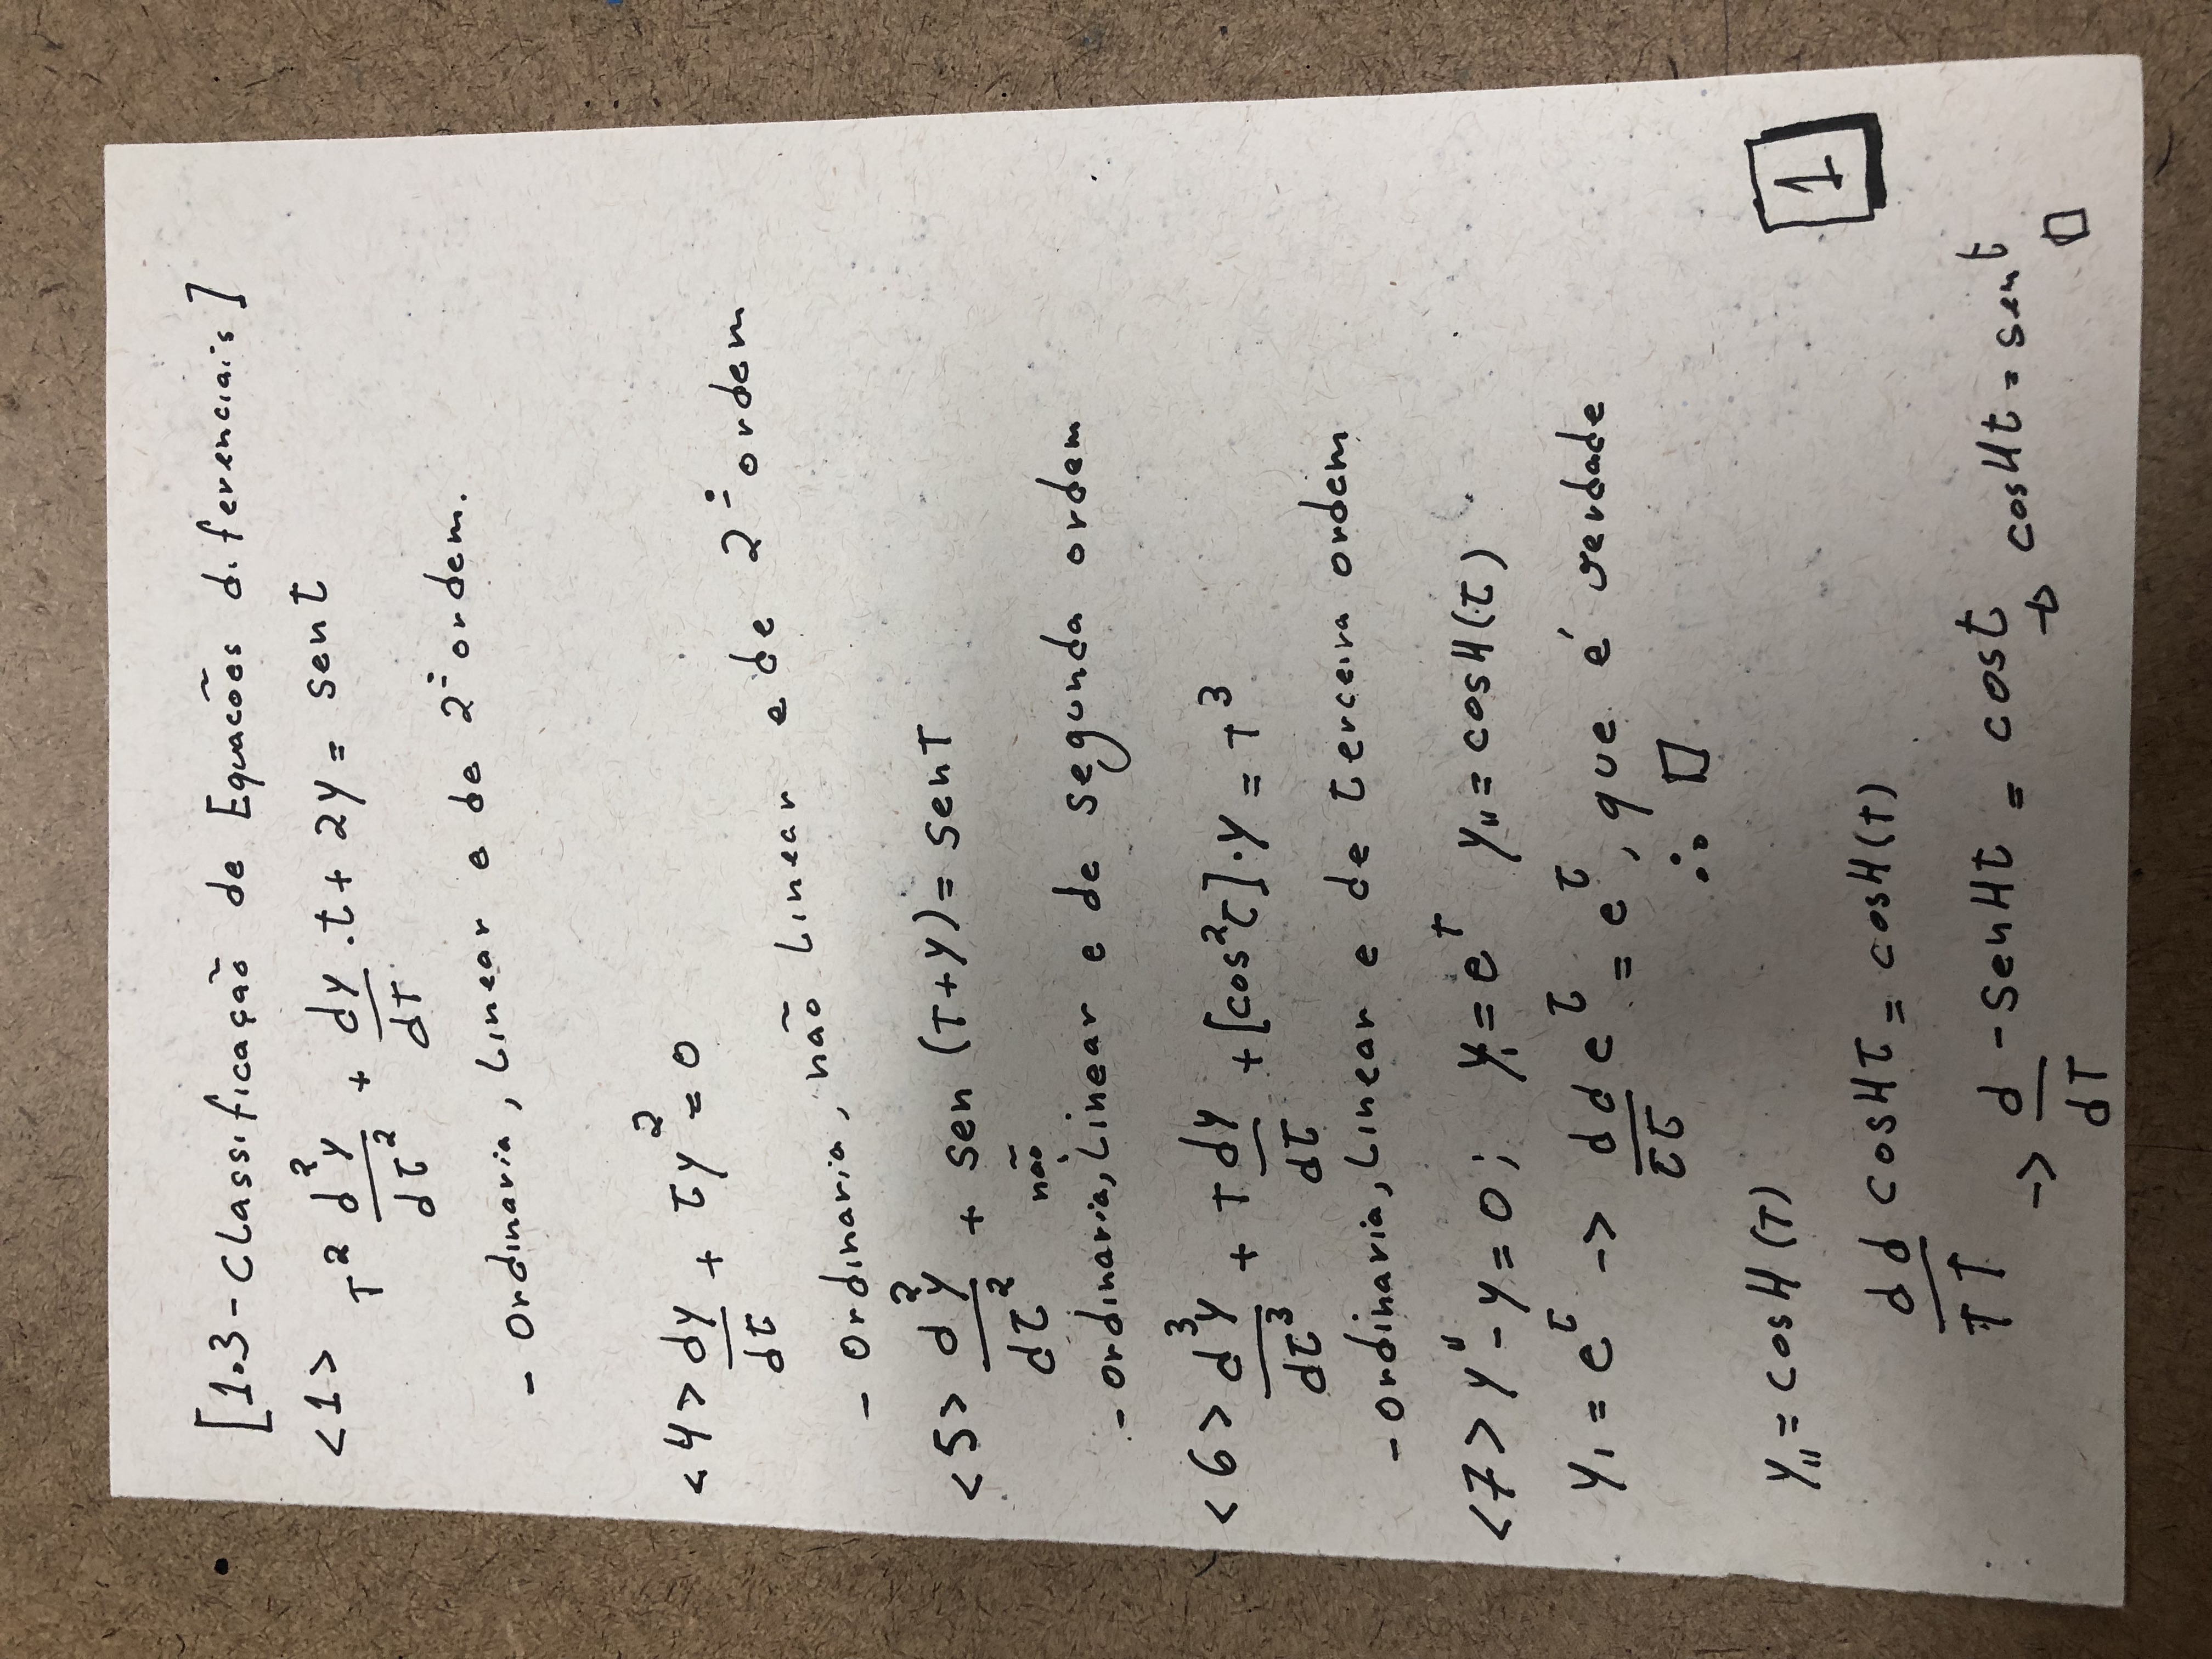 [1.3 - Classificação de Equacões diferenciais]
<1> T² d²y/dt² + dy/dT . t + 2y = sen t
- Ordinaria, Linear e de 2ª ordem.
<4> dy/dt + ty² = 0
- Ordinaria, não Linear e de 2ª ordem
<5> d²y/dt² + sen (T+y) = senT
não
- ordinaria, Linear e de segunda ordem
<6> d³y/dt³ + T dy/dt + [cos²t].y = T³
- ordinaria, Linear e de terceira ordem
<7> y" - y = 0 ; y₁ = e^T y₁₁ = cosH(t)
y₁ = e^t -> dd/tt e^t = e^t, que é verdade
∴ □
y₁₁ = cosH (T)
dd/TT cosHt = cosH(t)
-> d/dT - senHt = cost -> cosHt = sent
□
1